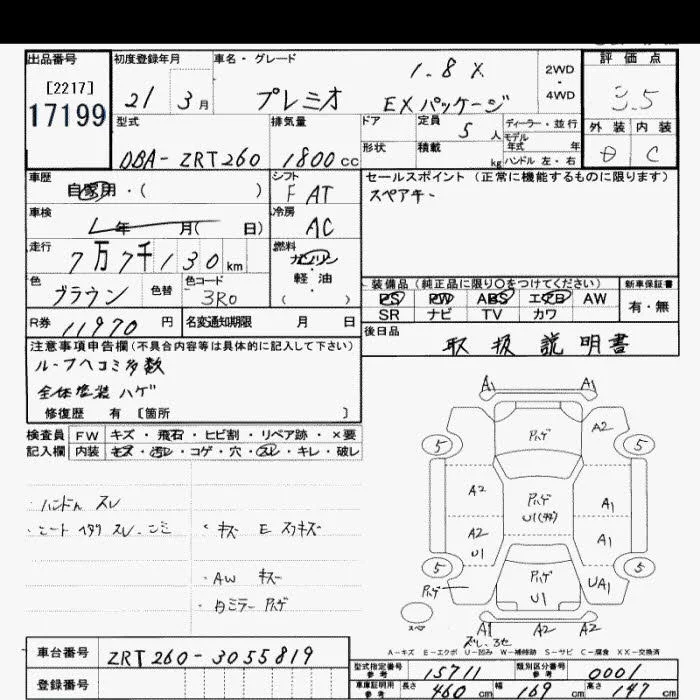 出品番号 初度登録年月 車名・グレード 評価点
[2217] 1.8 X 2WD
17199 21 3月 プレミオ EXパッケージ ・ 4WD 3.5
型式 排気量 ドア 定員 5人 ディーラー・並行 外装 内装
モデル年式 年
DBA-ZRT260 1800cc 形状 積載 kg ハンドル 左・右 C
車歴 シフト セールスポイント (正常に機能するものに限ります)
自家用・( ) F AT スペアキー
車検 冷房
年 月( 日) AC
走行 燃料
7万7千130km ガソリン
色 色替 色コード ・ 装備品 (純正品に限り○をつけてください) 新車保証書
ブラウン 3R0 軽油 PS PW ABS エアB AW 有・無
( ) SR ナビ TV カワ
R券 11970円 名変通知期限 月 日 後日品
取扱説明書
注意事項申告欄(不具合内容等は具体的に記入して下さい)
ルーフヘコミ多数
全体塗装ハゲ
修復歴 有 〔箇所 〕
検査員 FW キズ・飛石・ヒビ割・リペア跡・×要
記入欄 内装 キズ・汚レ・コゲ・穴・スレ・キレ・破レ
A1 A1
ハゲ A2
5 5
・ハンドル スレ A2 ハゲ A1
・シート ヘタリ スレ・シミ ・キズ E スリキズ U1(多数)
A2 U1 A1
5 5
・AW キズ ハゲ ハゲ U1 UA1
・白ミラー ハゲ
スペア A1 A2 A2
A-キズ E-エクボ U-凹み W-補修跡 S-サビ C-腐食 XX-交換済
車台番号 ZRT260-3055819
型式指定番号 参考 15711 類別区分番号 参考 0001
登録番号 車庫証明用 参考 長さ 460cm 幅 169cm 高さ 147cm